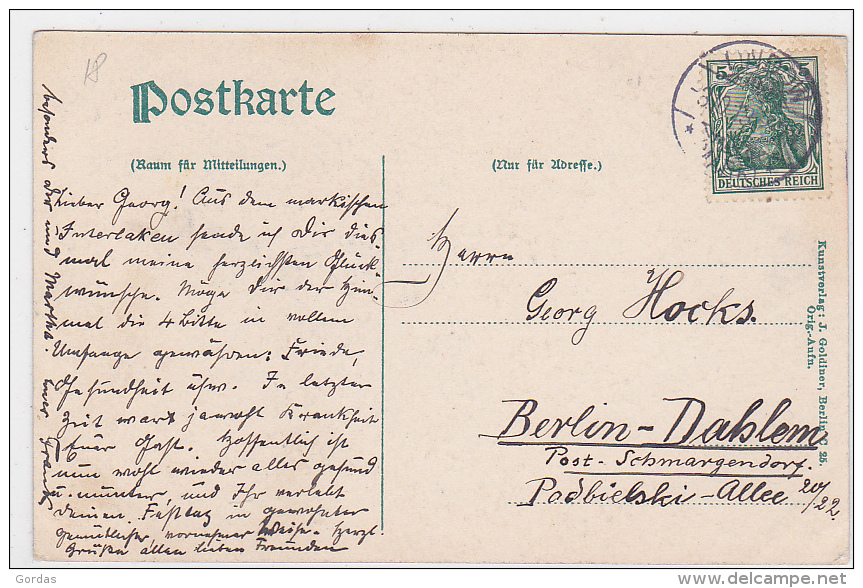 18
Postkarte
(Raum für Mitteilungen.)
(Nur für Adresse.)
5 5
DEUTSCHES REICH
Lieber Georg! Aus dem märkischen
Interlaken sende ich Dir dies-
mal meine herzlichsten Glück-
wünsche. Möge Dir der Him-
mal die 4 Bitte in vollem
Umfange gewähren: Friede,
Gesundheit usw. In letzter
Zeit wart ja wohl Krankheit
Euer Gast. Hoffentlich ist
nun wohl wieder alles gesund
u. munter, und Ihr verlebt
Deinen Festtag in gewohnter
gemütlicher, vornehmer Weise. Herzl
Grüße allen lieben Freunden
besonders Dir und Martha. Euer Frantz
Herrn
Georg Hocks.
Berlin-Dahlem
Post-Schmargendorf.
Podbielski-Allee 20/22.
Kunstverlag: J. Goldiner, Berlin C. 25.
Orig.-Aufn.
Gordas
delcampe.net